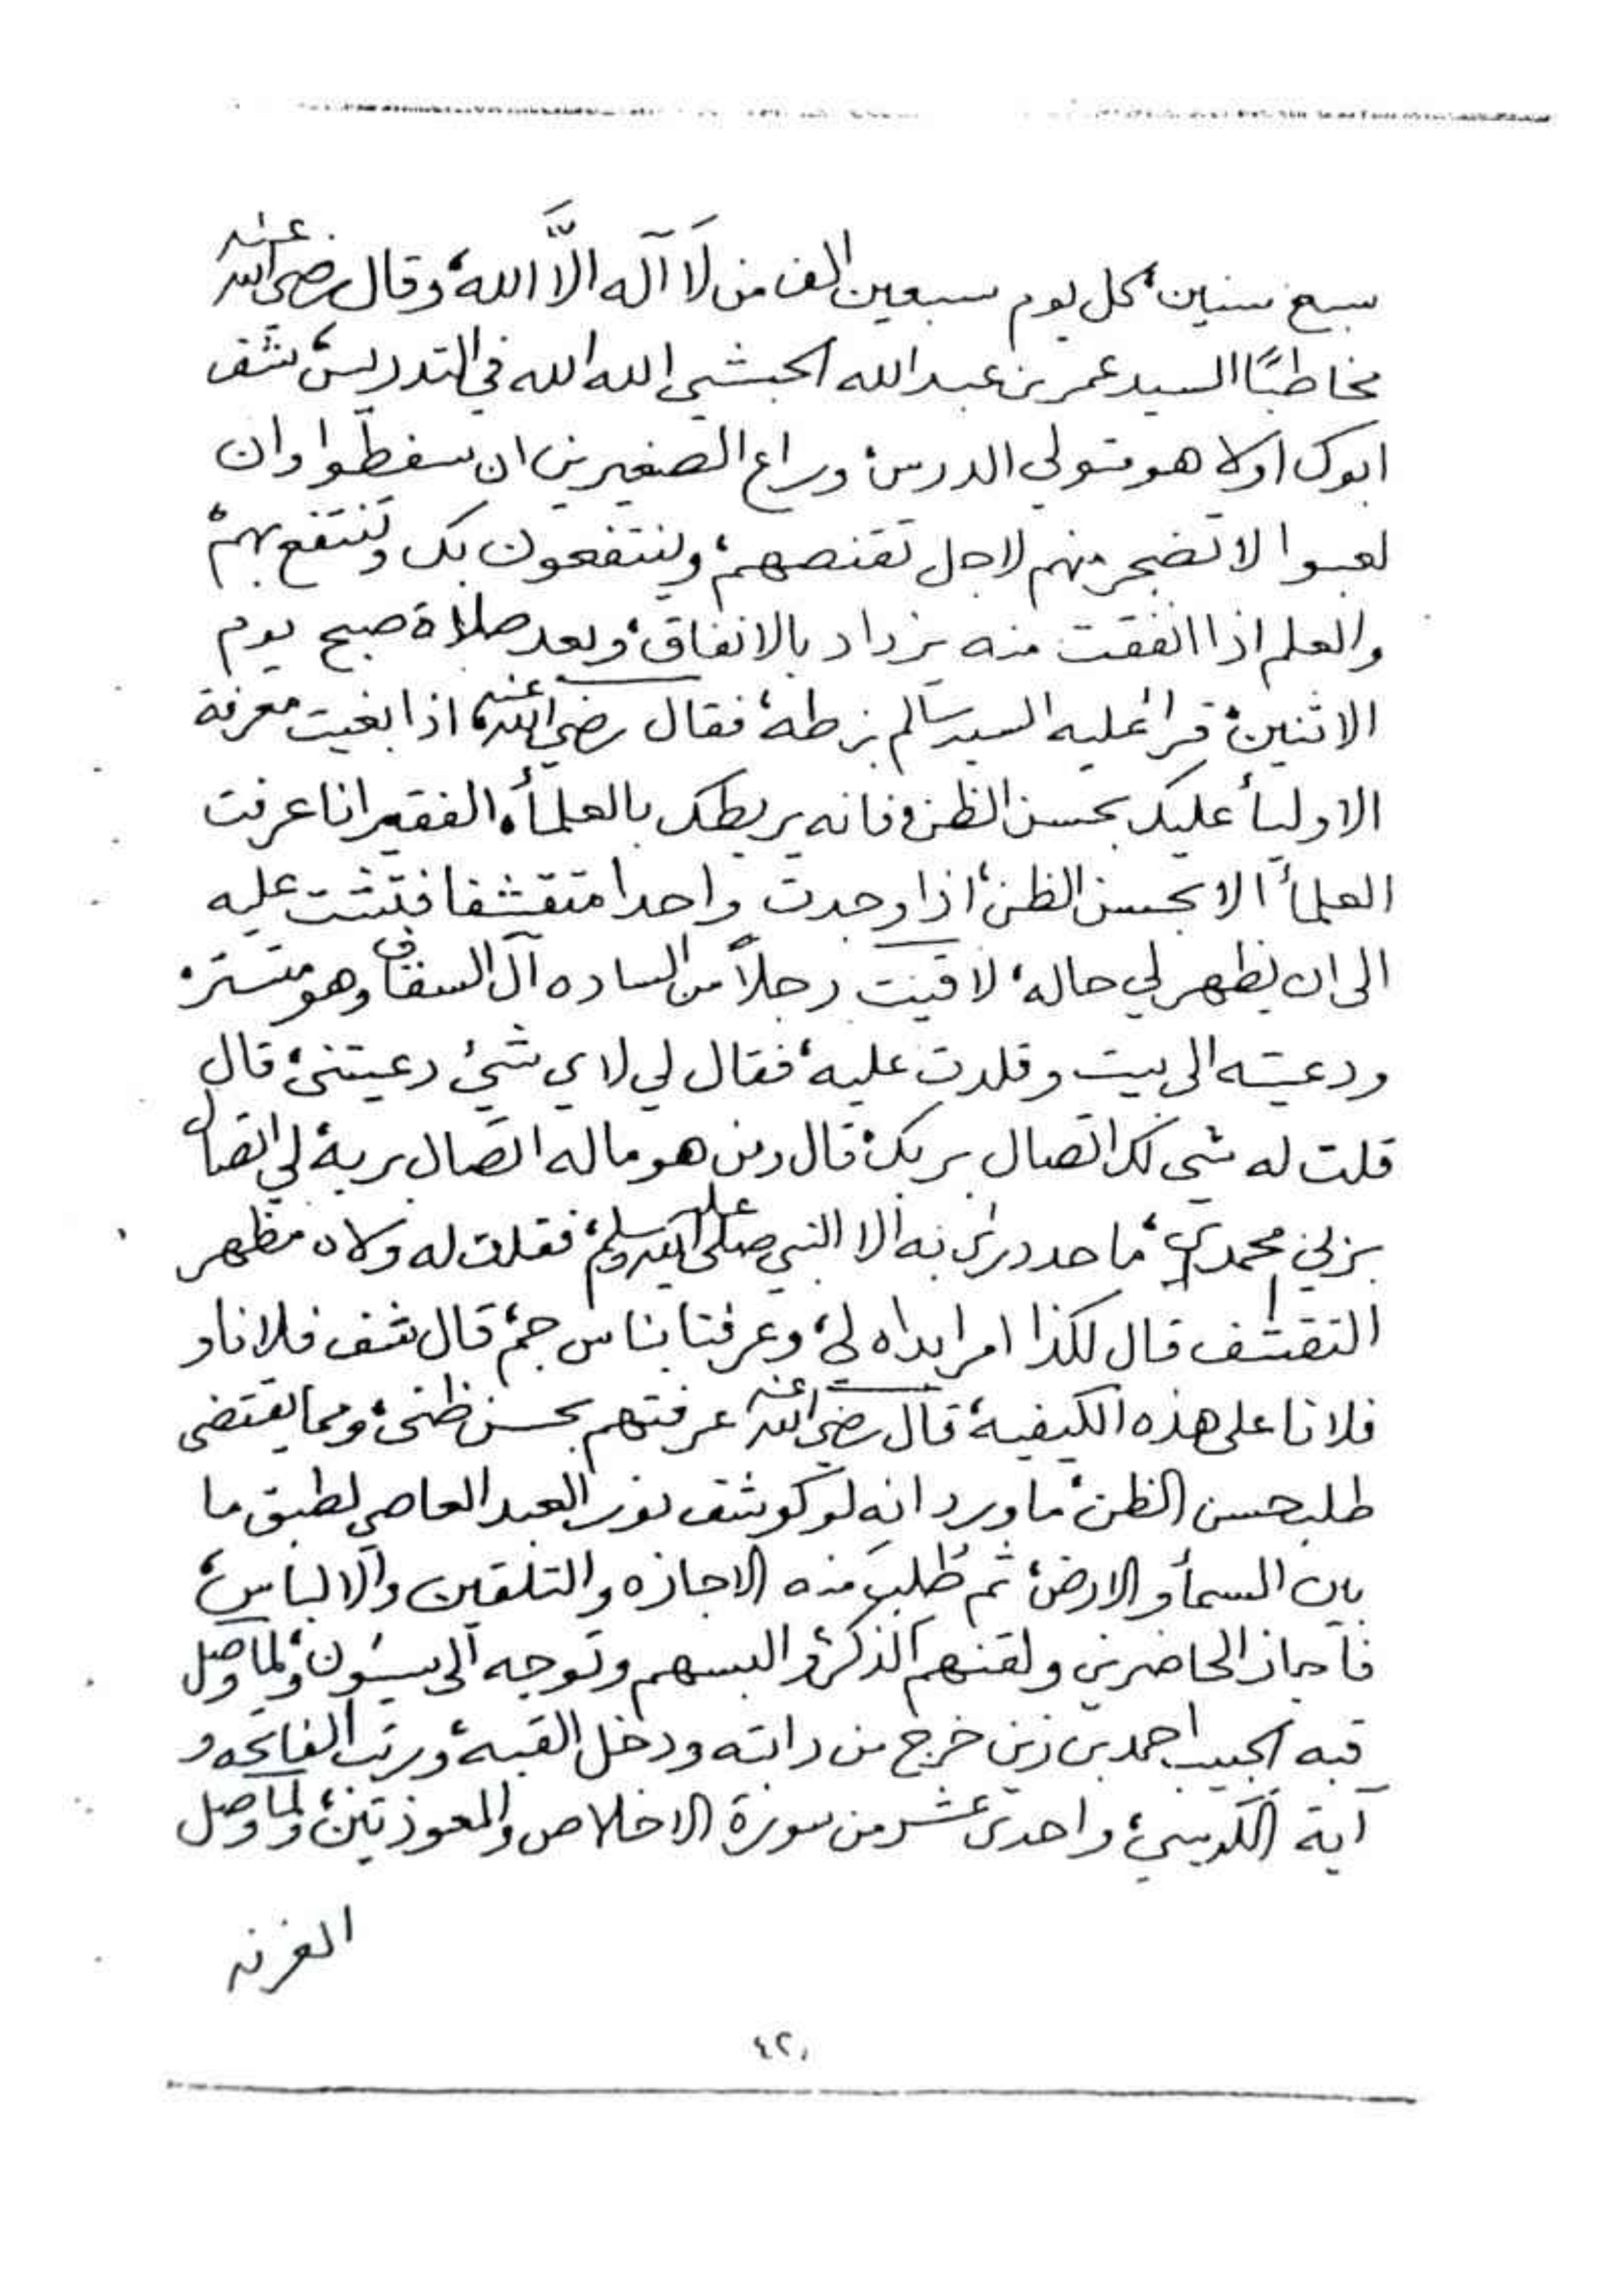 سبع سنين، كل يوم سبعين الف من لَا آله الَّا الله، وقال رضي الله عنه
مخاطبًا السيد عمر بن عبد الله الحبشي الله الله في التدريس، شف
ابوك اولا هو متولي الدرس، وراع الصغيرين ان سغطوا وان
لعبوا لا تضجر منهم لاجل تقنصهم، وينتفعون بك وتنتفع بهم،
والعلم اذا انفقت منه يزداد بالانفاق، وبعد صلاة صبح يوم
الاثنين، قرأ عليه السيد سالم بن طه، فقال رضي الله عنه، اذا بغيت معرفة
الاوليأ عليك بحسن الظن، فانه يربطك بالعلمأ، الفقير انا عرفت
العلمأ الا بحسن الظن، اذا وجدت واحدا متقشفا فتشت عليه
الى ان يظهر لي حاله، لاقيت رجلاً من الساده آل السقاف وهو متستر،
ودعيته الى بيت وقلدت عليه، فقال لي لاي شيْ دعيتني، قال
قلت له شي لك اتصال بربك، قال ومن هو ماله اتصال بربه، لي اتصال
بربي محمدي، ما حد درى به الا النبي صلى الله عليه وسلم، فقلت له ولاه مظهر
التقشف قال لكذا امر ابداه لي، وعرفنا بناس جم، قال شف فلانا و
فلانا على هذه الكيفية، قال رضي الله عنه عرفتهم بحسن ظني، ومما يقتضى
طلب حسن الظن، ما ورد انه لو كوشف نور العبد العاصي لطبق ما
بين السمأ والارض، ثم طُلب منه الاجازه والتلقين والالباس،
فأجاز الحاضرين ولقنهم الذكر، والبسهم وتوجه الى سيئون، ولما وصل
قبه الحبيب احمد بن زين خرج من دابته ودخل القبه، ورتب الفاتحه و
آية الكرسي، واحدى عشر من سورة الاخلاص والمعوذتين، ولما وصل
الغرفه
٤٢٠